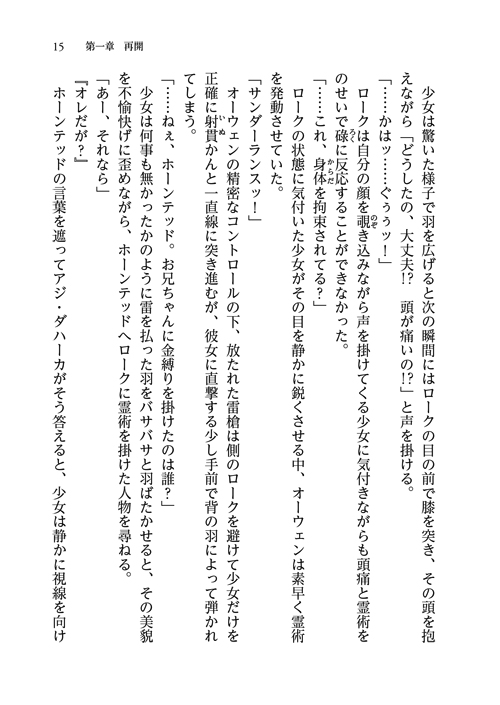 15　第一章　再開
　少女は驚いた様子で羽を広げると次の瞬間にはロークの目の前で膝を突き、その頭を抱
えながら「どうしたの、大丈夫!?　頭が痛いの!?」と声を掛ける。
「……かはッ……ぐぅぅッ！」
　ロークは自分の顔を覗き込みながら声を掛けてくる少女に気付きながらも頭痛と霊術を
のせいで碌に反応することができなかった。
「……これ、身体を拘束されてる？」
　ロークの状態に気付いた少女がその目を静かに鋭くさせる中、オーウェンは素早く霊術
を発動させていた。
「サンダーランスッ！」
　オーウェンの精密なコントロールの下、放たれた雷槍は側のロークを避けて少女だけを
正確に射貫かんと一直線に突き進むが、彼女に直撃する少し手前で背の羽によって弾かれ
てしまう。
「……ねぇ、ホーンテッド。お兄ちゃんに金縛りを掛けたのは誰？」
　少女は何事も無かったかのように雷を払った羽をバサバサと羽ばたかせると、その美貌
を不愉快げに歪めながら、ホーンテッドへロークに霊術を掛けた人物を尋ねる。
「あー、それなら」
『オレだが？』
　ホーンテッドの言葉を遮ってアジ・ダハーカがそう答えると、少女は静かに視線を向け